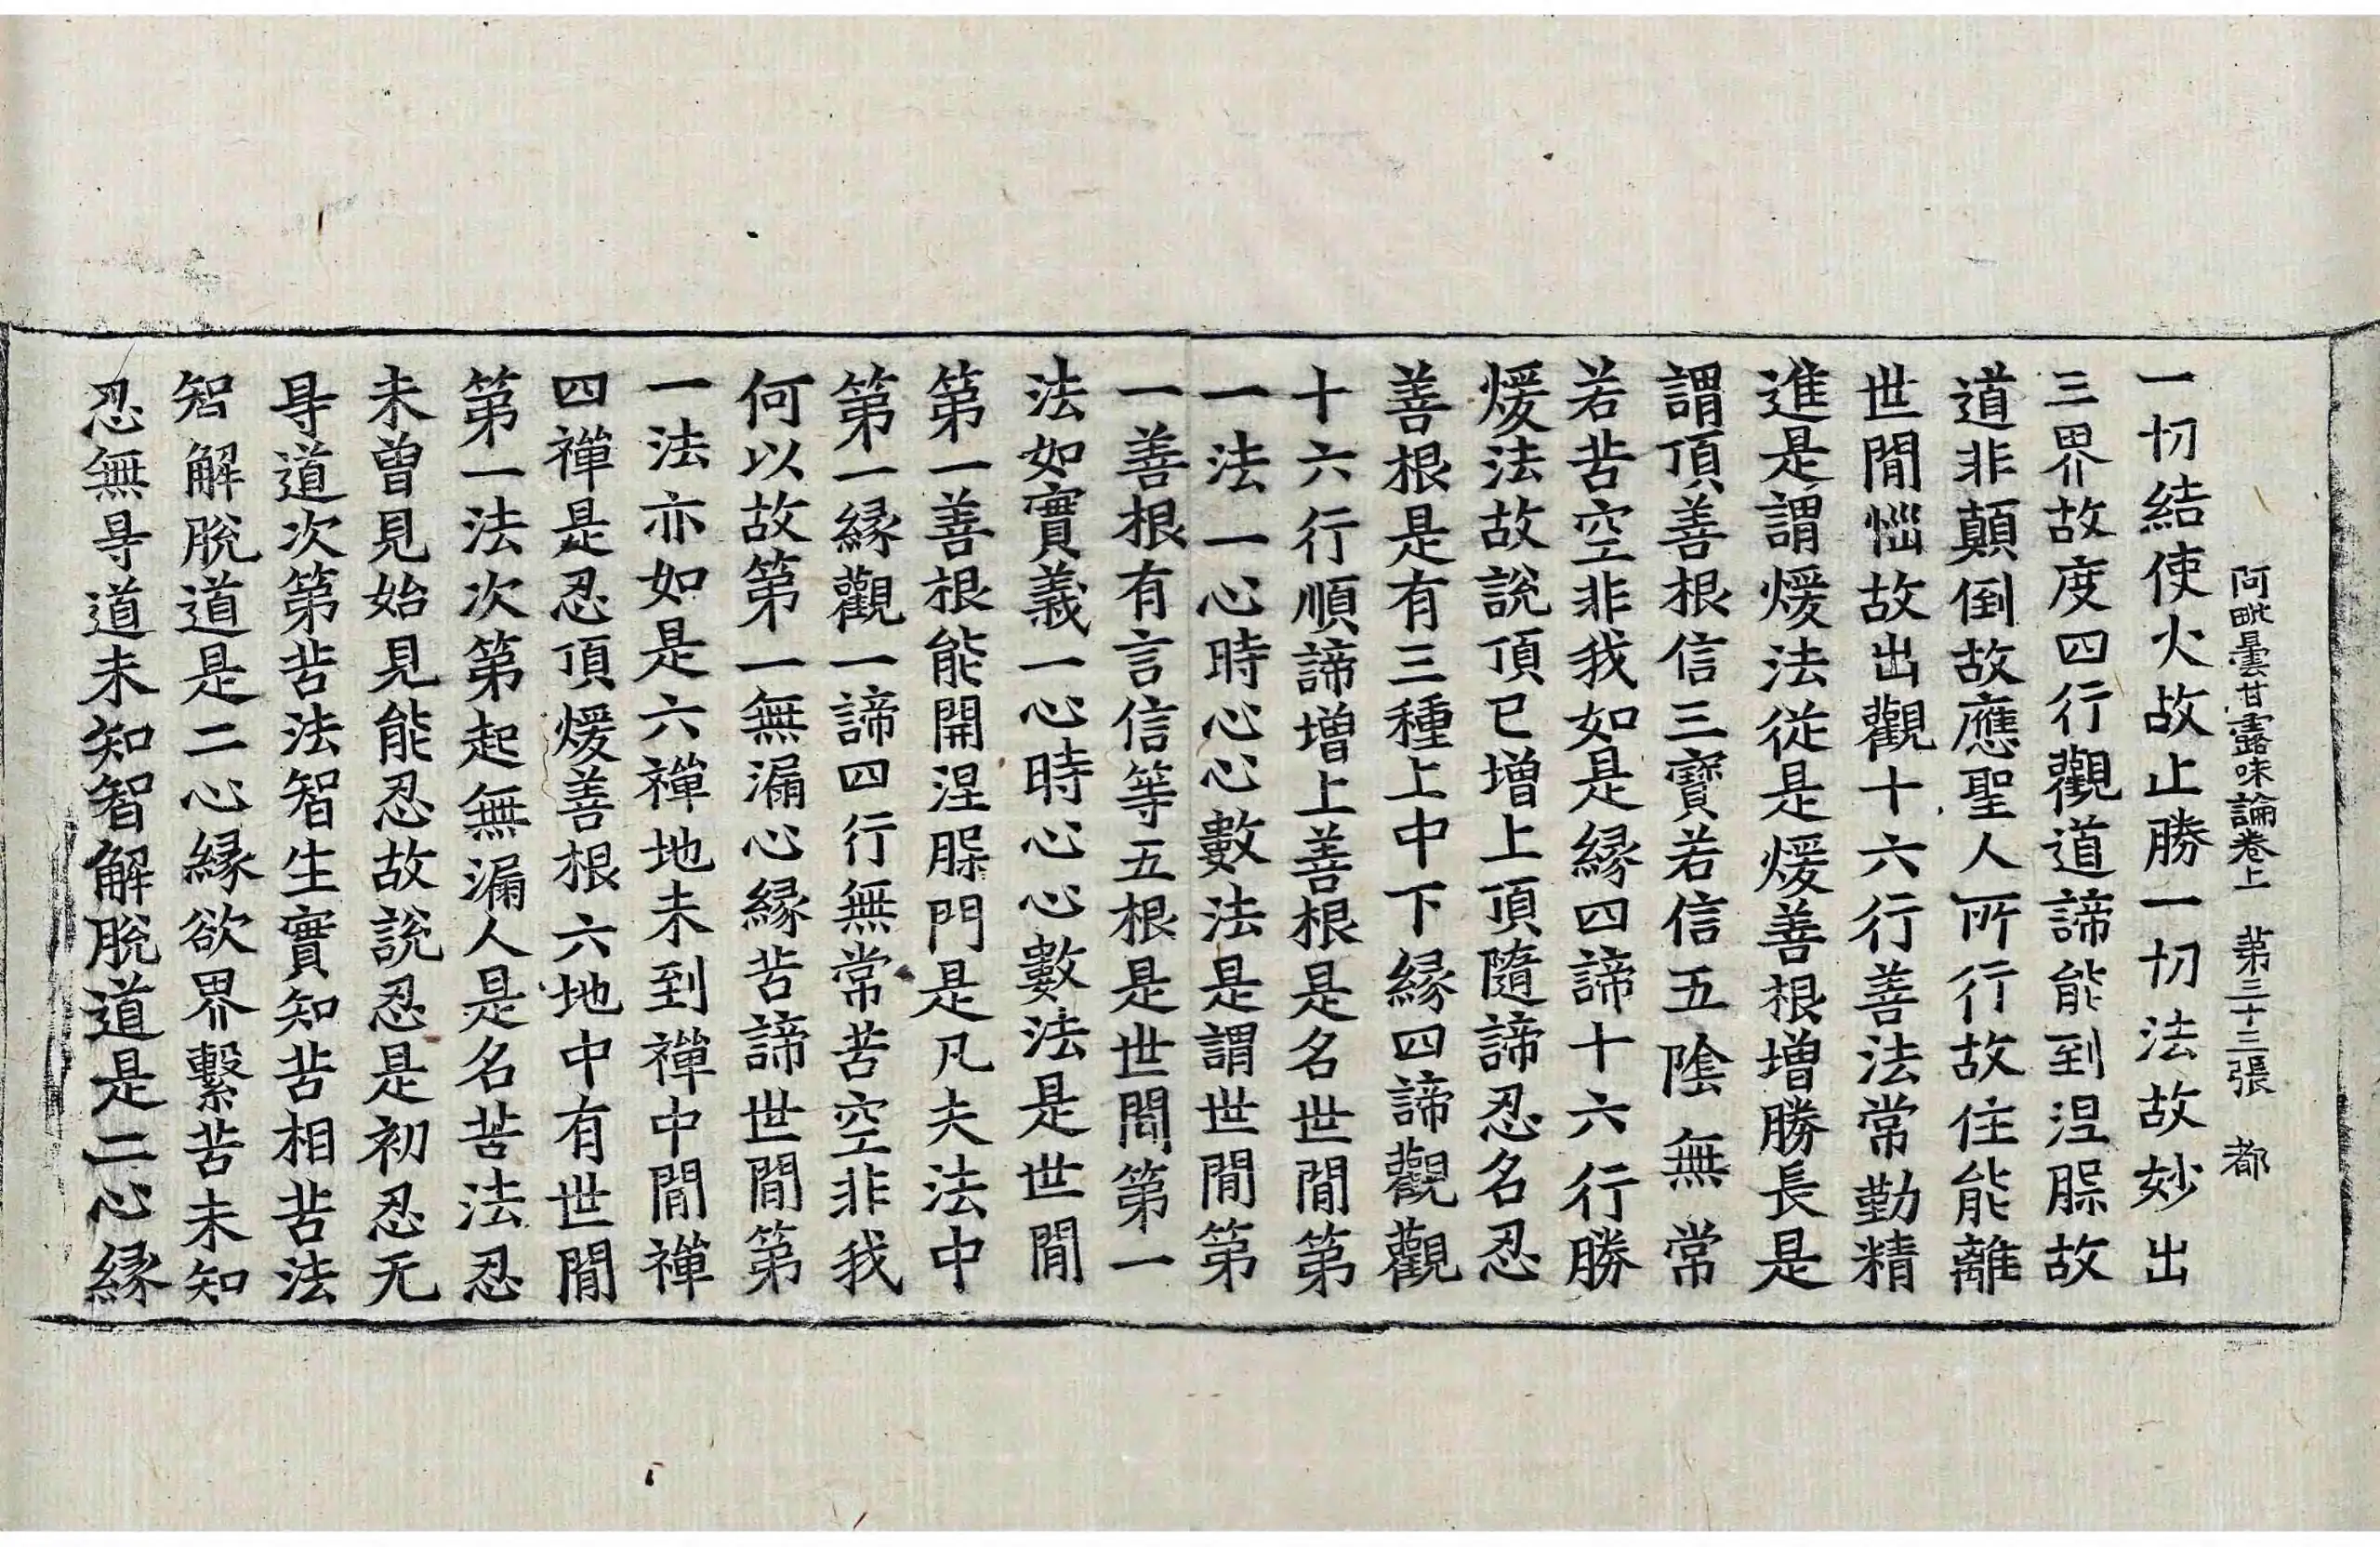 阿毗曇甘露味論卷上　第三十三張　都
一切結使火故止勝一切法故妙出
三界故度四行觀道諦能到涅槃故
道非顛倒故應聖人所行故住能離
世閒惱故出觀十六行善法常勤精
進是謂煖法從是煖善根增勝長是
謂頂善根信三寶若信五陰無常
若苦空非我如是緣四諦十六行勝
煖法故說頂已增上頂隨諦忍名忍
善根是有三種上中下緣四諦觀觀
十六行順諦增上善根是名世閒第
一法一心時心心數法是謂世閒第
一善根有言信等五根是世閒第一
法如實義一心時心心數法是世閒
第一善根能開涅槃門是凡夫法中
第一緣觀一諦四行無常苦空非我
何以故第一無漏心緣苦諦世閒第
一法亦如是六禪地未到禪中閒禪
四禪是忍頂煖善根六地中有世閒
第一法次第起無漏人是名苦法忍
未曾見始見能忍故說忍是初忍无
㝵道次第苦法智生實知苦相苦法
智解脫道是二心緣欲界繫苦未知
忍無㝵道未知智解脫道是二心緣